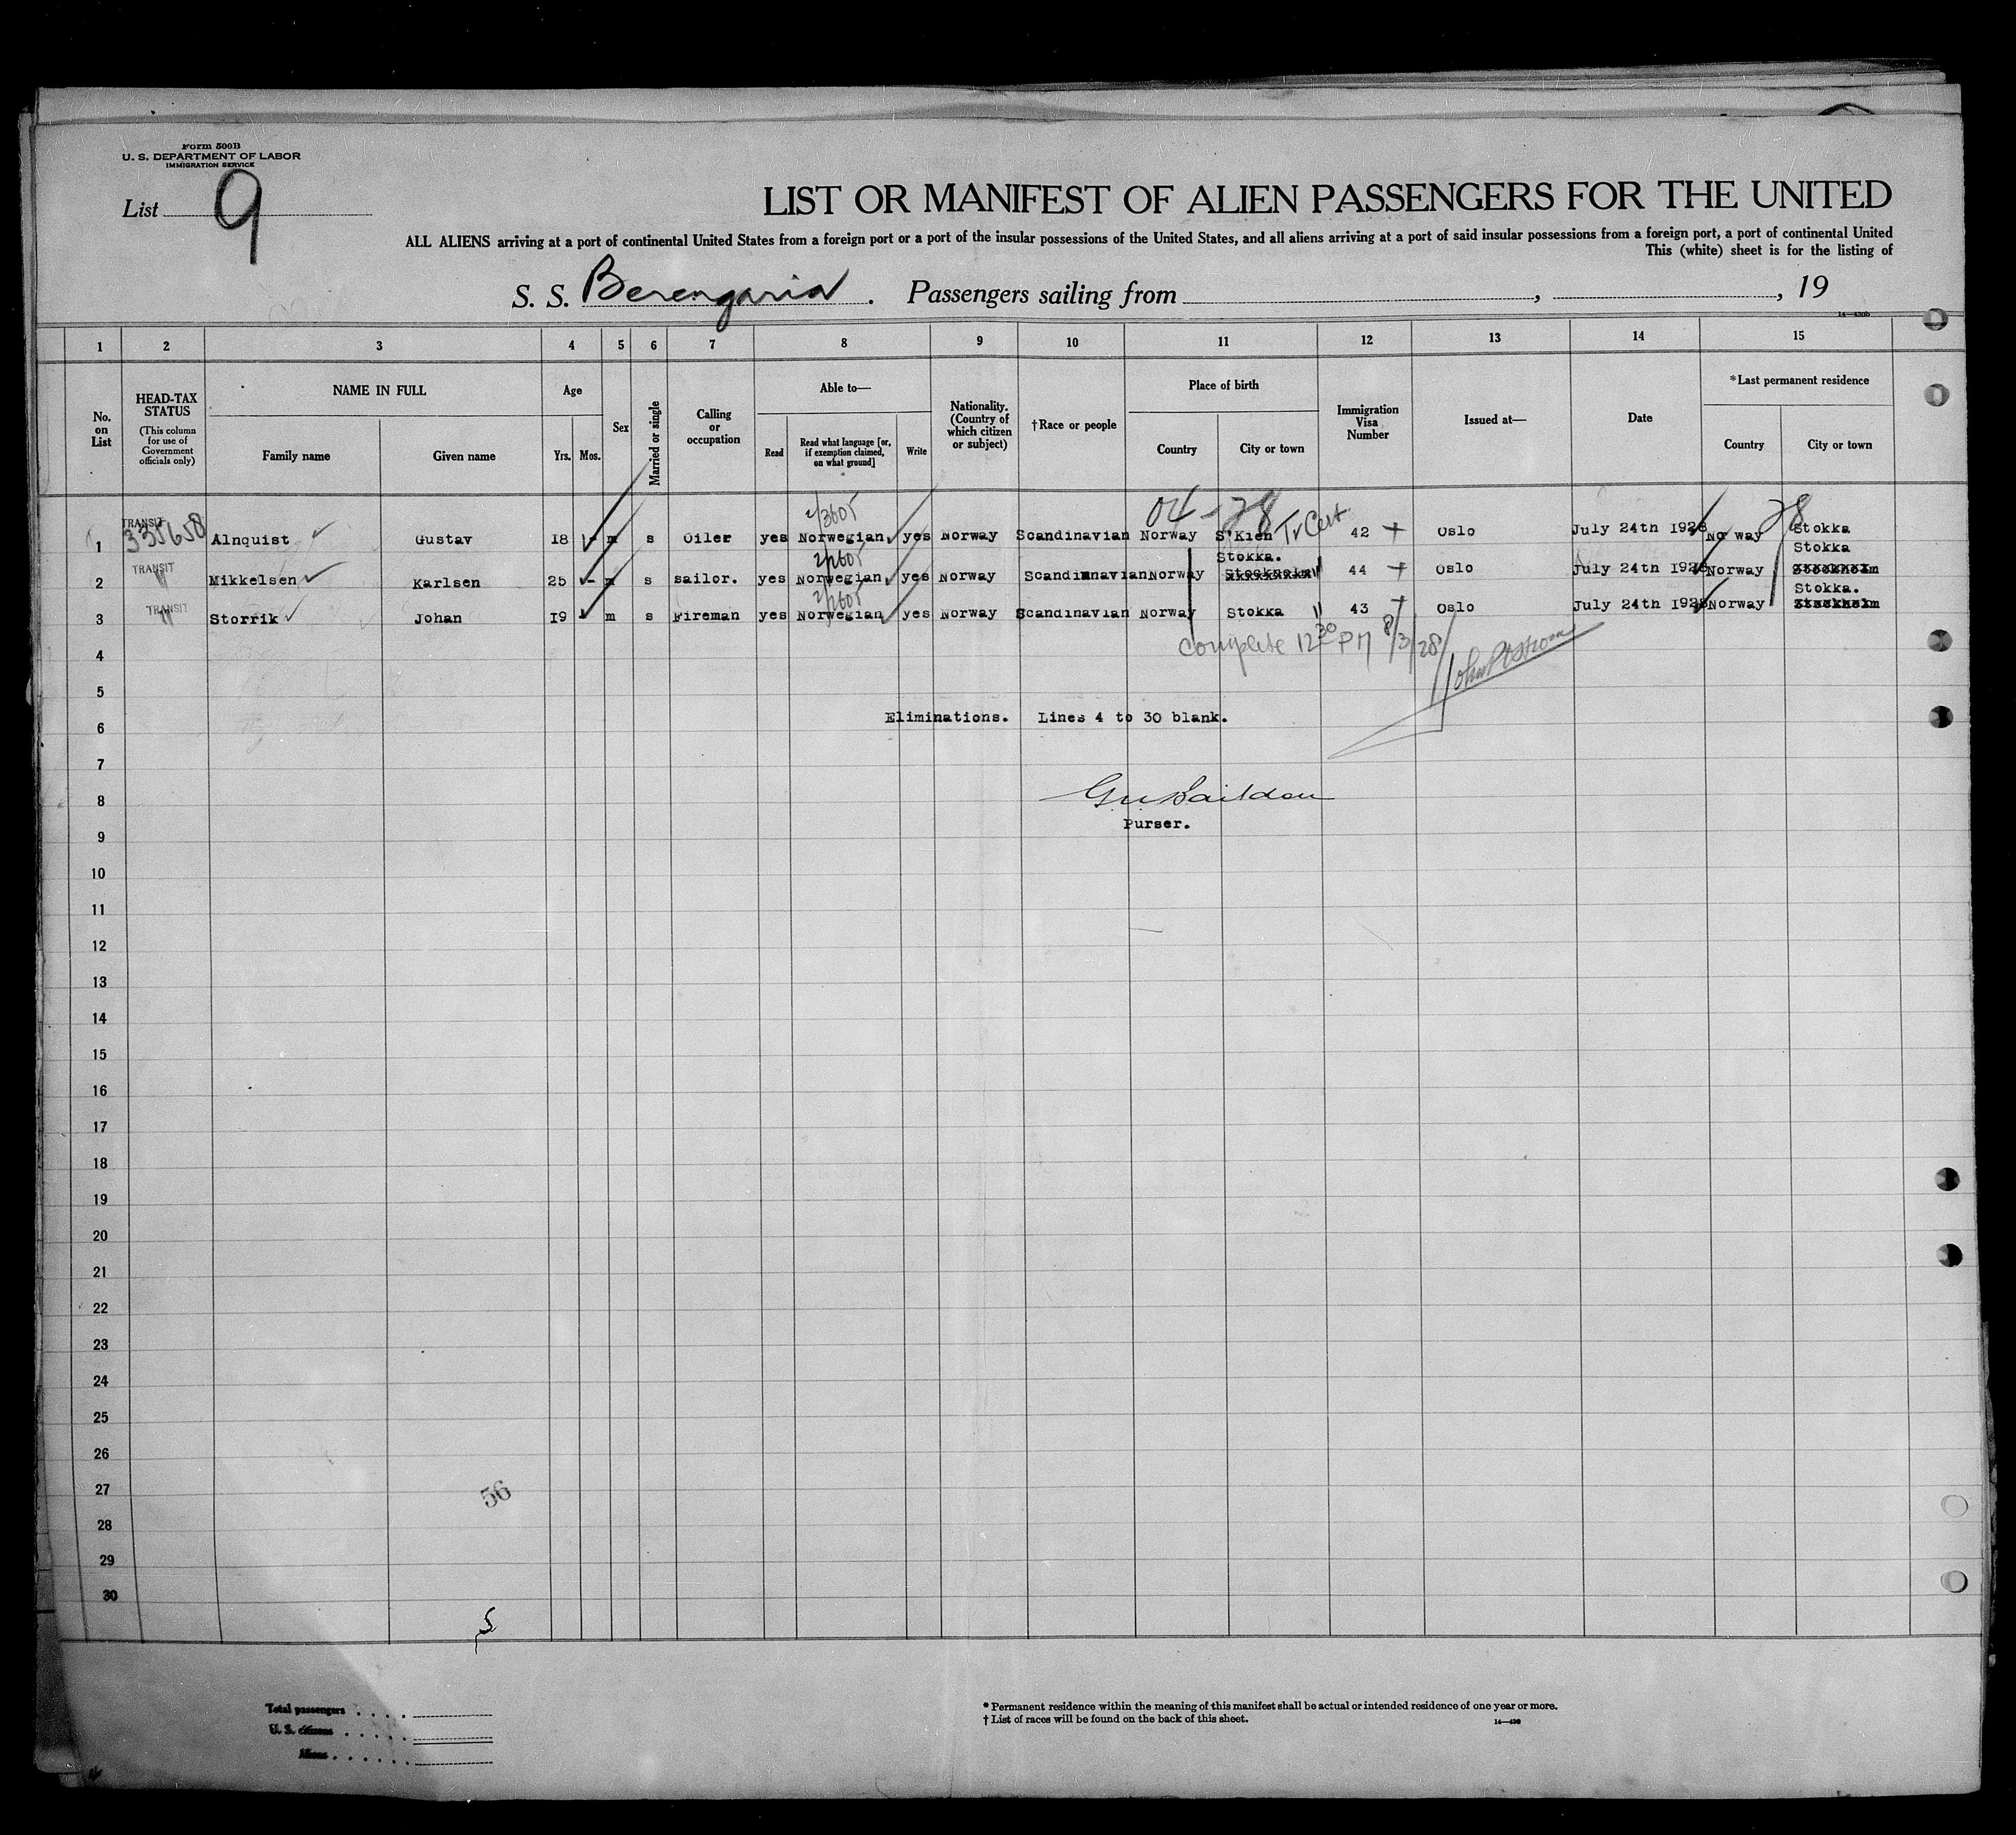 Form 500B
U. S. DEPARTMENT OF LABOR
IMMIGRATION SERVICE
List 9
LIST OR MANIFEST OF ALIEN PASSENGERS FOR THE UNITED
ALL ALIENS arriving at a port of continental United States from a foreign port or a port of the insular possessions of the United States, and all aliens arriving at a port of said insular possessions from a foreign port, a port of continental United
This (white) sheet is for the listing of
S. S. Berengaria. Passengers sailing from , , 19
14—430b
1 2 3 4 5 6 7 8 9 10 11 12 13 14 15
No. on List
HEAD-TAX STATUS (This column for use of Government officials only)
NAME IN FULL
Family name
Given name
Age
Yrs. Mos.
Sex
Married or single
Calling or occupation
Able to—
Read
Read what language [or, if exemption claimed, on what ground]
Write
Nationality. (Country of which citizen or subject)
†Race or people
Place of birth
Country
City or town
Immigration Visa Number
Issued at—
Date
*Last permanent residence
Country
City or town
2/3605 04-28 28
1 TRANSIT 335658 Alnquist Gustav 18 - m s Oiler yes Norwegian yes Norway Scandinavian Norway S'Kien Tr Cert 42 Oslo July 24th 1928 No way Stokka
2/2605 Stokka. Stokka
2 TRANSIT " Mikkelsen Karlsen 25 - m s sailor. yes Norwegian yes Norway Scandinavian Norway Stockholm " 44 Oslo July 24th 1928 Norway Stockholm
2/2605 Stokka.
3 TRANSIT " Storrik Johan 19 m s Fireman yes Norwegian yes Norway Scandinavian Norway Stokka " 43 Oslo July 24th 1928 Norway Stockholm
4 Complete 12 30 PM 8/3/28
5
Eliminations. Lines 4 to 30 blank.
6
7
8
Purser.
9
10
11
12
13
14
15
16
17
18
19
20
21
22
23
24
25
26
27
56
28
29
30
5
Total passengers
U. S. citizens
Aliens
* Permanent residence within the meaning of this manifest shall be actual or intended residence of one year or more.
† List of races will be found on the back of this sheet.
14—430